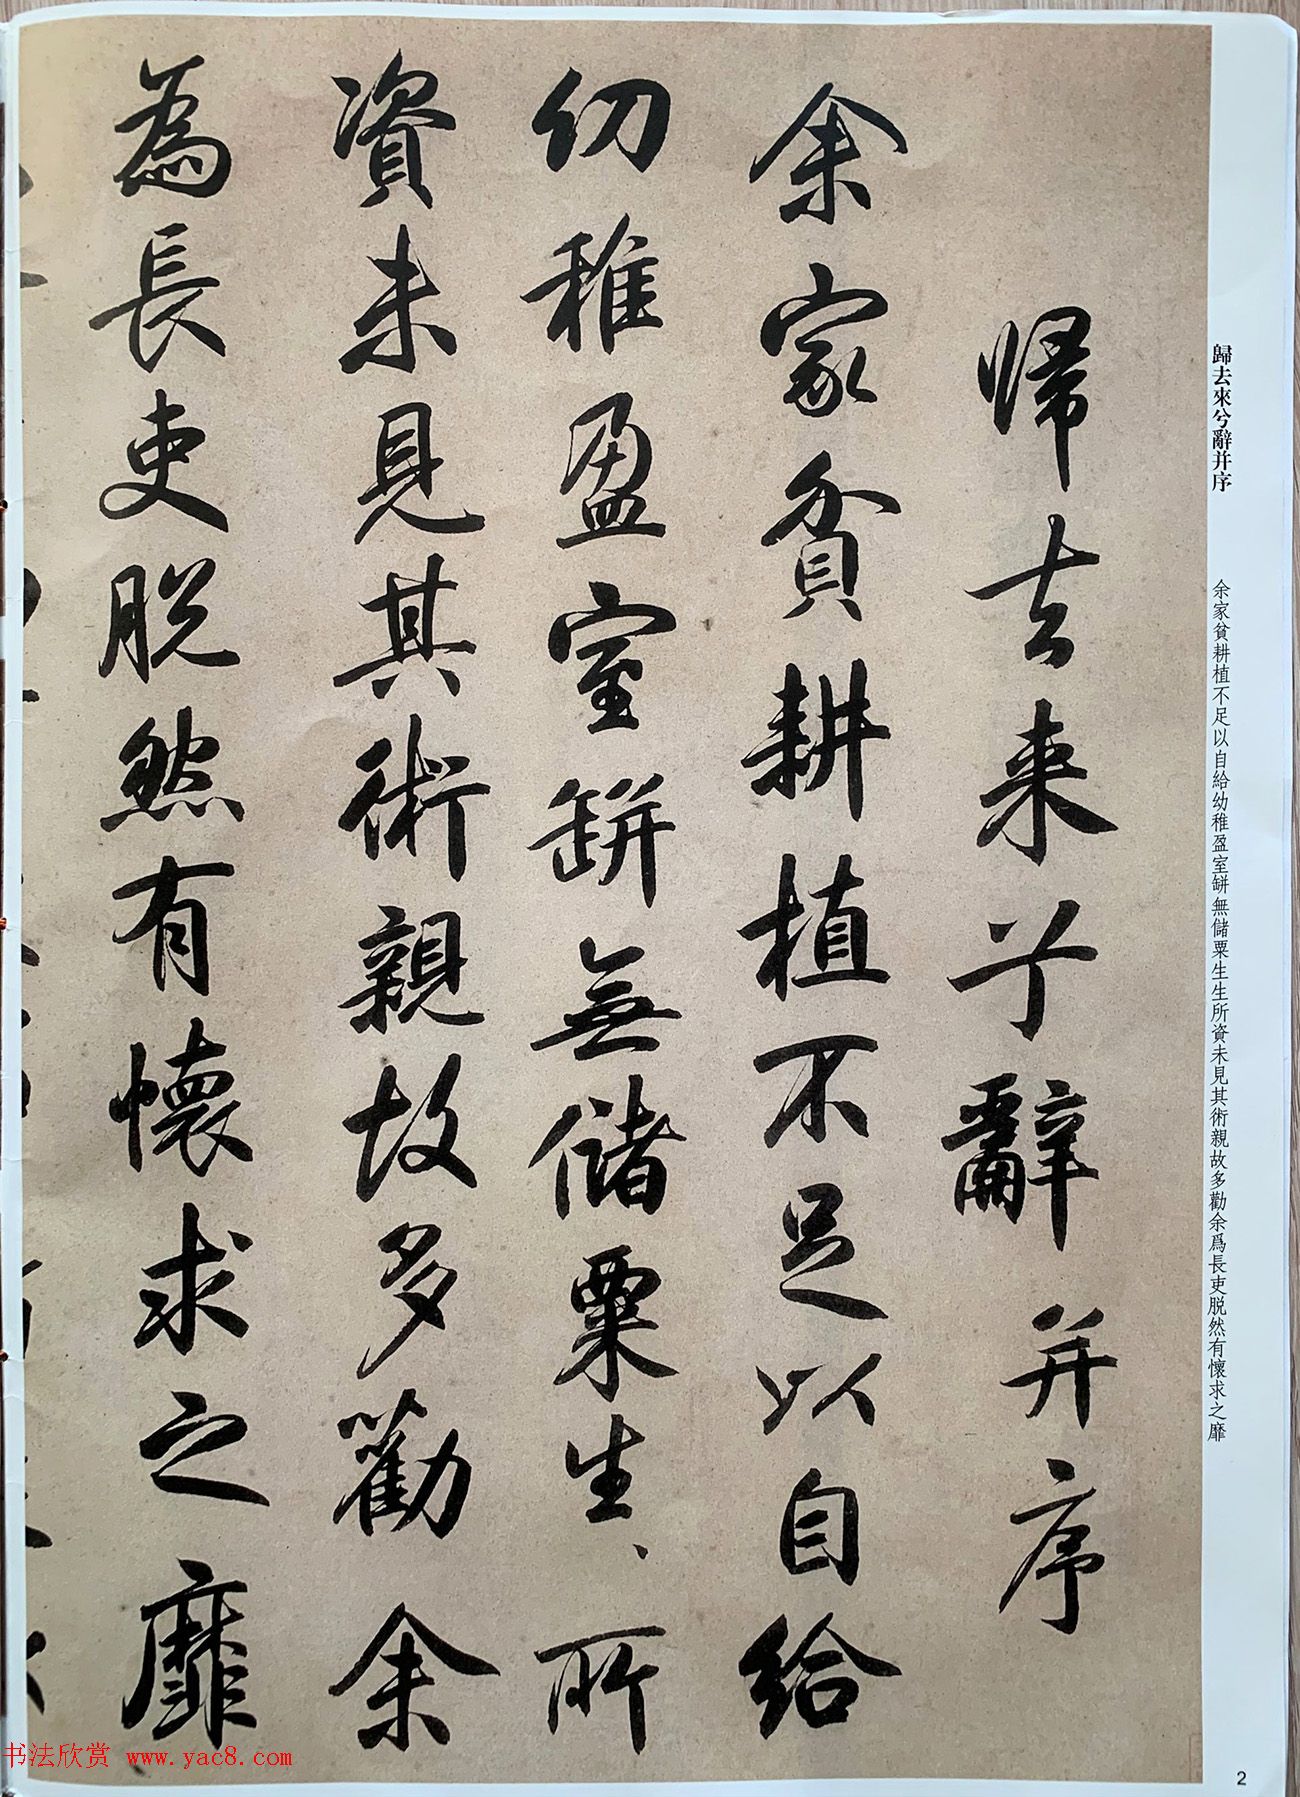 歸去來兮辭并序
余家貧耕植不足以自給幼稚盈室缾無儲粟生生所資未見其術親故多勸余爲長吏脱然有懷求之靡
歸去来兮辭并序
余家貧耕植不足以自給
幼稚盈室缾無儲粟生、所
資未見其術親故多勸余
為長吏脱然有懷求之靡
2
书法欣赏 www.yac8.com